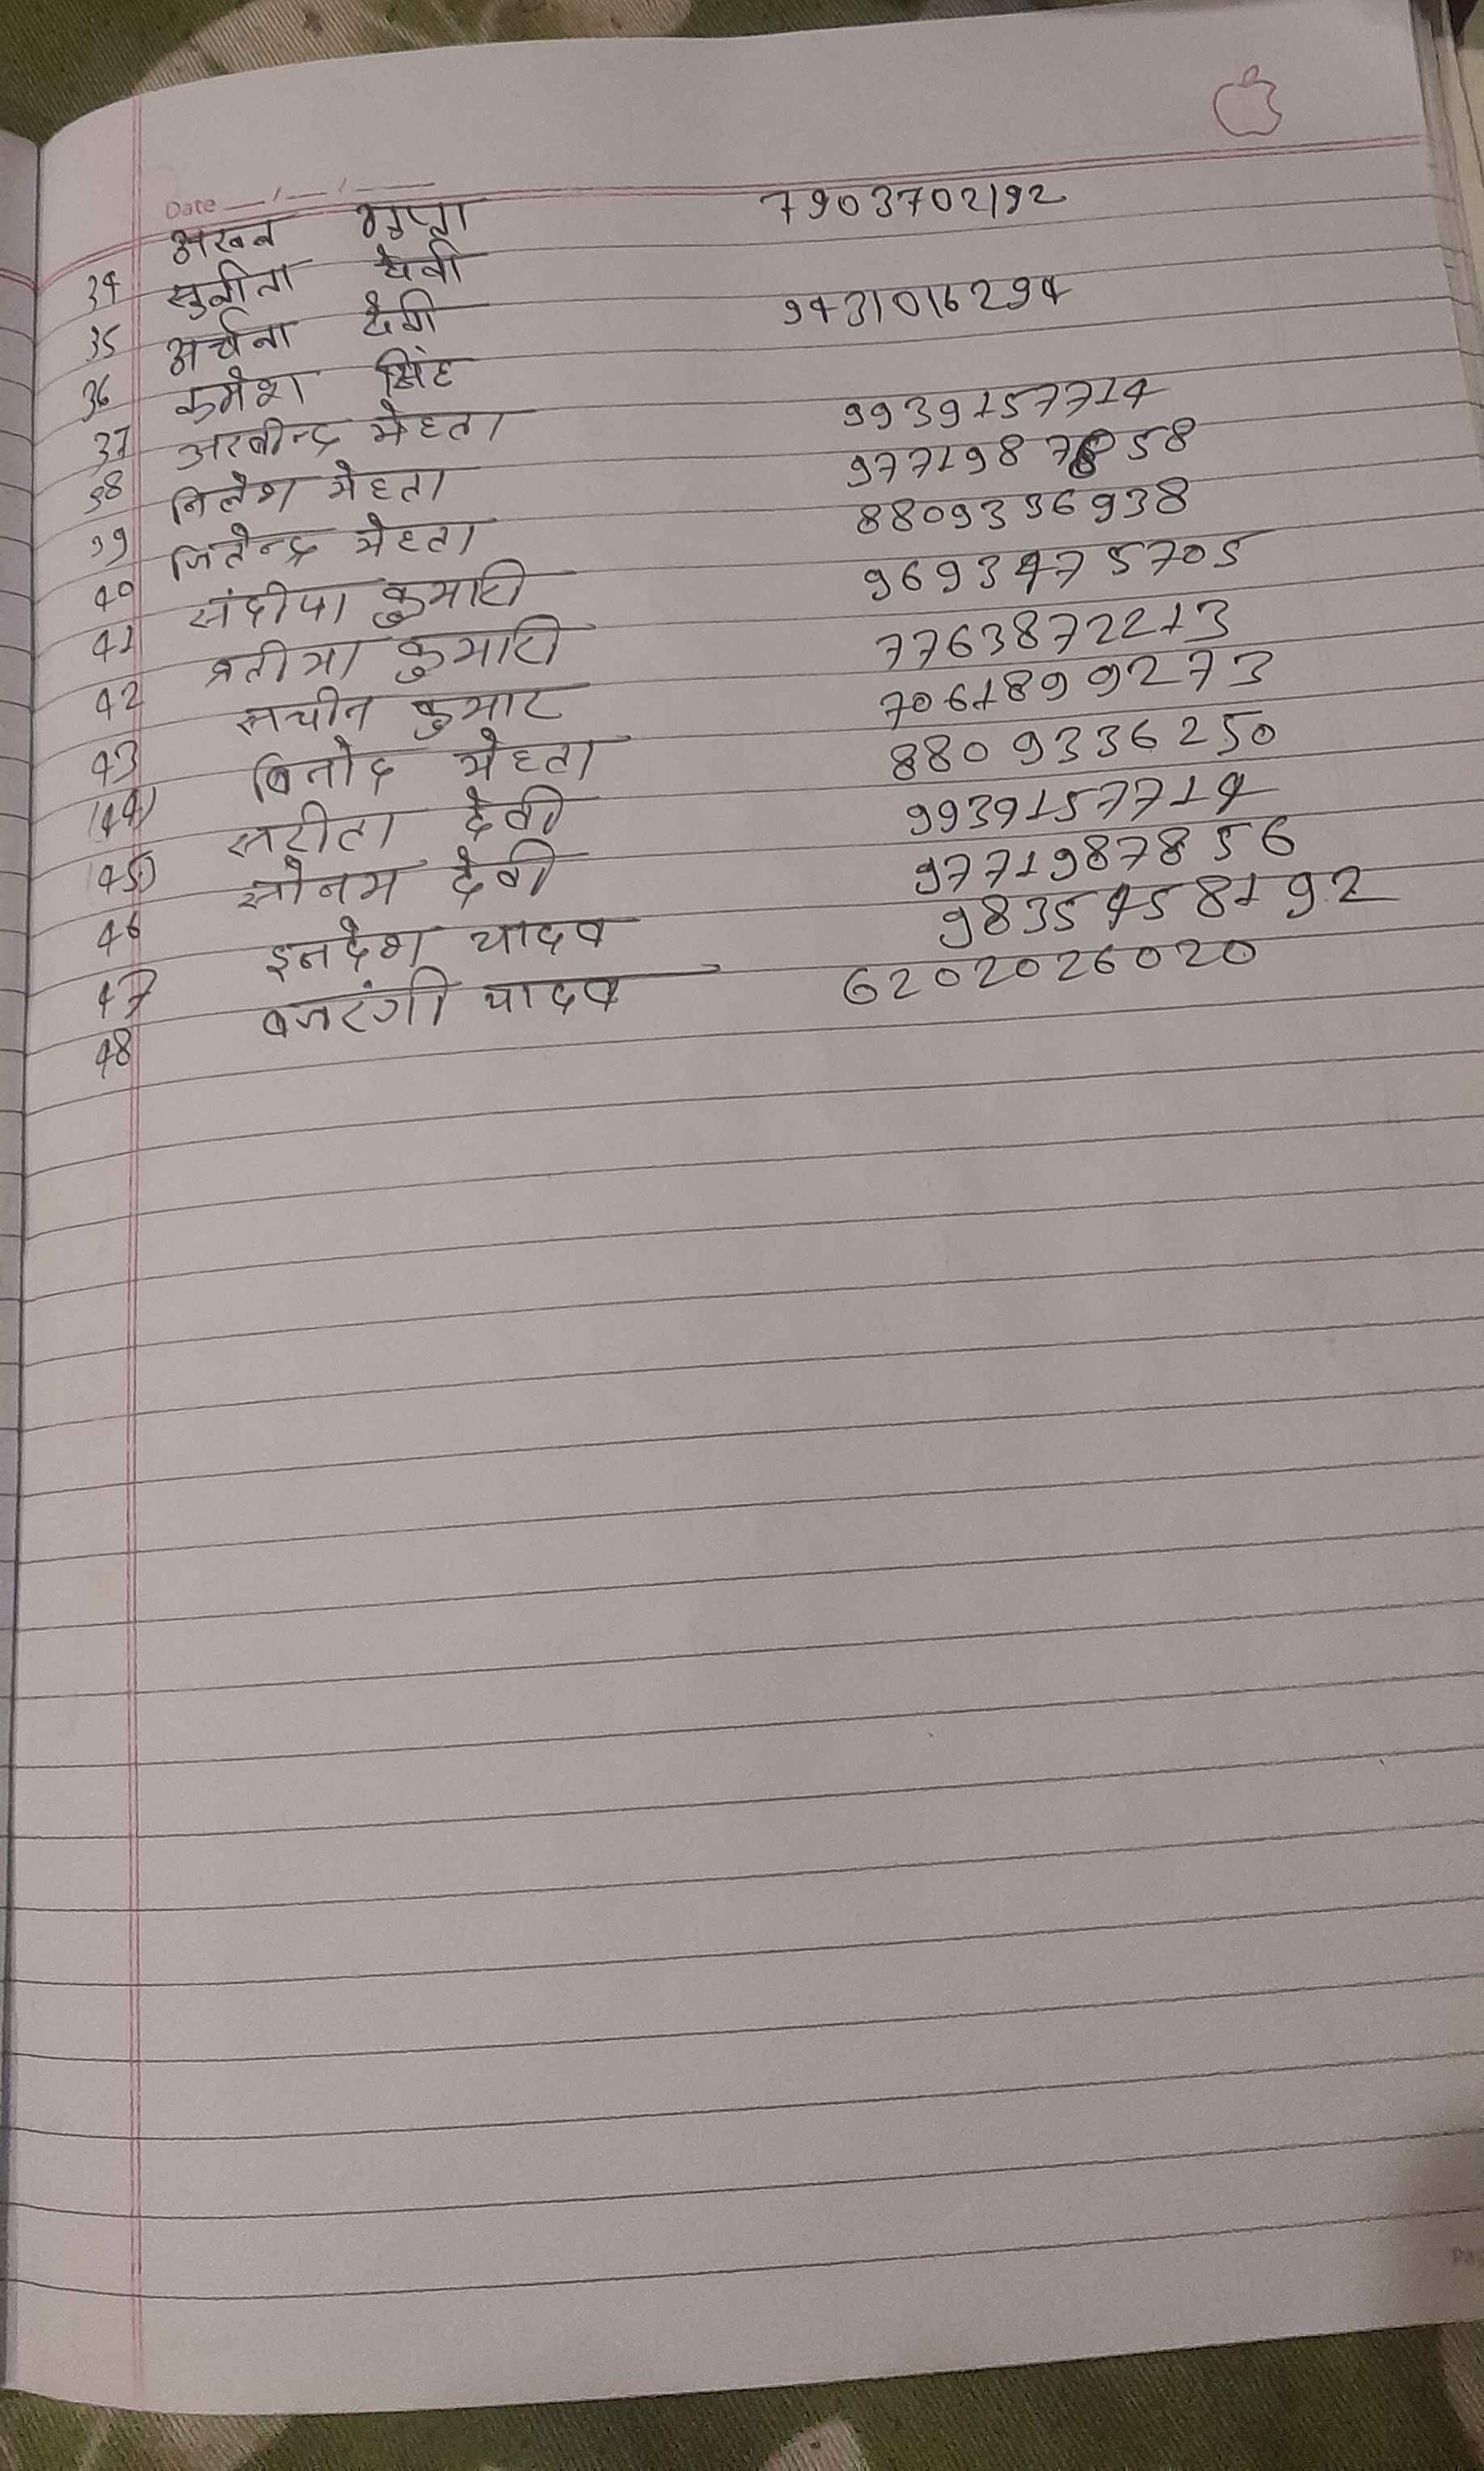 Date __/__/____
34 अखन गुप्ता 7903702192
35 सुनीता देवी
36 अर्चना देवी 9431016294
37 कमेश सिंह
38 अरवीन्द्र मेहता 9939157714
39 निलेश मेहता 977198 58
40 जितेन्द्र मेहता 8809336938
41 संदीपा कुमारी 9693475705
42 प्रतीमा कुमारी 7763872213
43 सचीन कुमार 7061899273
(44) विनोद मेहता 8809336250
(45) सरीता देवी 9939157714
46 सोनम देवी 9771987856
47 इनदेश यादव 9835458192
48 बजरंगी यादव 6202026020